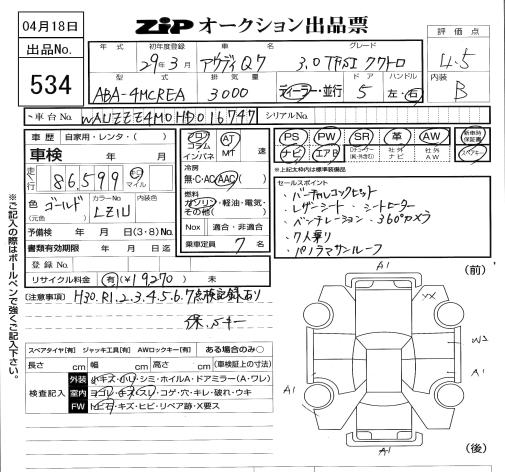 04月18日
ZiP オークション出品票
出品No.
534
年式
初年度登録
車名
グレード
29年3月
アウディ Q7
3.0 TFSI クワトロ
評価点
4.5
型式
排気量
ドア
ハンドル
ABA-4MCREA
3000
ディーラー・並行
5
左・右
内装
B
車台No.
WAUZZZ4M0HD016747
シリアルNo.
車歴
自家用・レンタ・( )
車検
年 月
走行
86,599
Km
マイル
色
ゴールド
(元色)
カラーNo.
LZ1U
内装色
予備検
月 日(3・8)No.
書類有効期限
年 月 日迄
登録No.
リサイクル料金
有(¥19,270) 未
フロア
コラム
インパネ
AT
MT
速
冷房
無・C・AC・AAC
燃料
ガソリン・軽油・電気・
その他( )
Nox
適合・非適合
乗車定員
7名
PS
PW
SR
革
AW
新車時
保証書
ナビ
エアB
社外
ナビ
社外
AW
※上記太枠内は標準装備品
セールスポイント
・バーチャルコックピット
・レザーシート ・シートヒーター
・ベンチレーション ・360°カメラ
・7人乗り
・パノラマサンルーフ
(注意事項)
H30.R1.2.3.4.5.6.7点検記録あり
※ご記入の際はボールペンで強くご記入下さい。
スペアタイヤ[有] ジャッキ工具[有] AWロックキー[有]
ある場合のみ○
長さ cm 幅 cm 高さ cm (車検証上の寸法)
検査記入
外装
小キズ・小ヘコ・シミ・ホイルA・ドアミラー(A・ワレ)
室内
ヨゴレ・キズ・スリ・コゲ・穴・キレ・破れ・ウキ
FW
トビ石・キズ・ヒビ・リペア跡・X要ス
(前)
A1
XX
A1
A1
A1
(後)